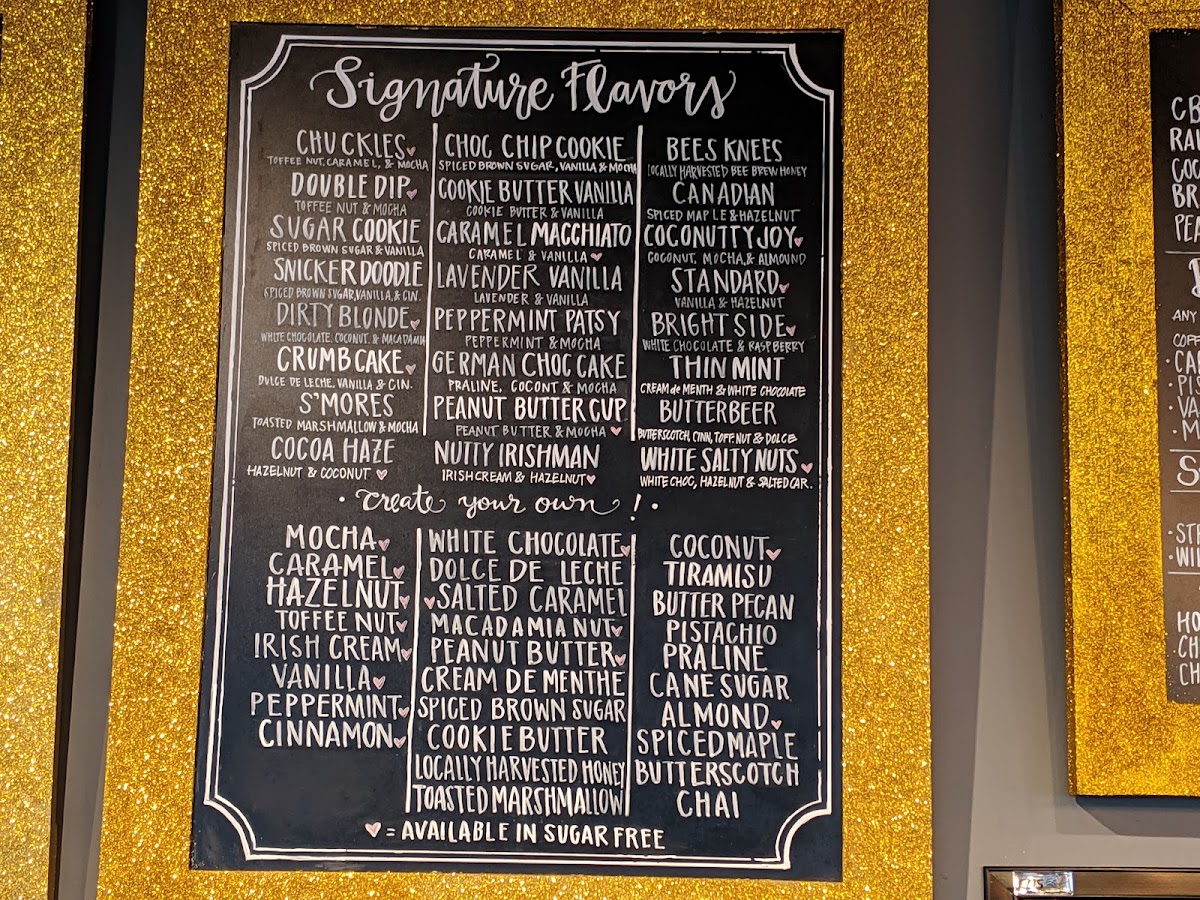 Signature Flavors
CHUCKLES♥
TOFFEE NUT, CARAMEL, & MOCHA
DOUBLE DIP♥
TOFFEE NUT & MOCHA
SUGAR COOKIE
SPICED BROWN SUGAR & VANILLA
SNICKERDOODLE
SPICED BROWN SUGAR, VANILLA, & CIN.
DIRTY BLONDE♥
WHITE CHOCOLATE, COCONUT, & MACADAMIA
CRUMBCAKE♥
DULCE DE LECHE, VANILLA & CIN.
S'MORES
TOASTED MARSHMALLOW & MOCHA
COCOA HAZE
HAZELNUT & COCONUT ♥
CHOC CHIP COOKIE
SPICED BROWN SUGAR, VANILLA & MOCHA
COOKIE BUTTER VANILLA
COOKIE BUTTER & VANILLA
CARAMEL MACCHIATO
CARAMEL & VANILLA ♥
LAVENDER VANILLA
LAVENDER & VANILLA
PEPPERMINT PATSY
PEPPERMINT & MOCHA
GERMAN CHOC CAKE
PRALINE, COCONT & MOCHA
PEANUT BUTTER CUP
PEANUT BUTTER & MOCHA ♥
NUTTY IRISHMAN
IRISH CREAM & HAZELNUT♥
BEES KNEES
LOCALLY HARVESTED BEE BREW HONEY
CANADIAN
SPICED MAPLE & HAZELNUT
COCONUTTY JOY♥
COCONUT, MOCHA, & ALMOUND
STANDARD♥
VANILLA & HAZELNUT
BRIGHT SIDE♥
WHITE CHOCOLATE & RASPBERRY
THIN MINT
CREAM de MENTH & WHITE CHOCOLATE
BUTTERBEER
BUTTERSCOTCH, CINN, TOFF. NUT & DOLCE
WHITE SALTY NUTS♥
WHITE CHOC, HAZELNUT & SALTED CAR.
· create your own! ·
MOCHA♥
CARAMEL♥
HAZELNUT♥
TOFFEE NUT♥
IRISH CREAM♥
VANILLA♥
PEPPERMINT♥
CINNAMON♥
WHITE CHOCOLATE♥
DOLCE DE LECHE
♥SALTED CARAMEL
MACADAMIA NUT♥
PEANUT BUTTER♥
CREAM DE MENTHE
SPICED BROWN SUGAR
COOKIE BUTTER
LOCALLY HARVESTED HONEY
TOASTED MARSHMALLOW
COCONUT♥
TIRAMISU
BUTTER PECAN
PISTACHIO
PRALINE
CANE SUGAR
ALMOND♥
SPICED MAPLE
BUTTERSCOTCH
CHAI
♥ = AVAILABLE IN SUGAR FREE
ANY